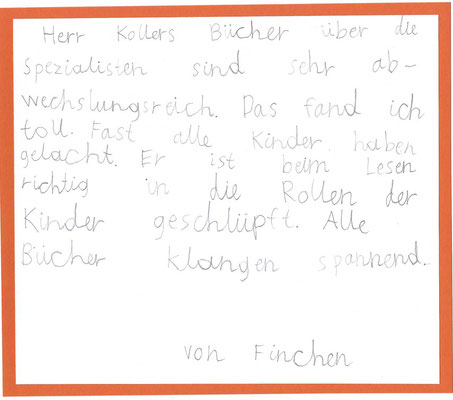 Herr Kollers Bücher über die
Spezialisten sind sehr ab-
wechslungsreich. Das fand ich
toll. Fast alle Kinder haben
gelacht. Er ist beim Lesen
richtig in die Rollen der
Kinder geschlüpft. Alle
Bücher klangen spannend.
von Finchen